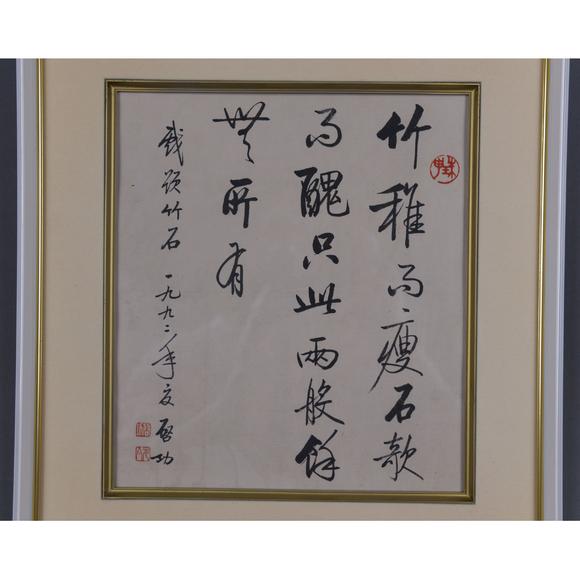 竹稚而瘦石欹
而醜只此兩般餘
無所有
戲題竹石 一九九二年夏 啓功